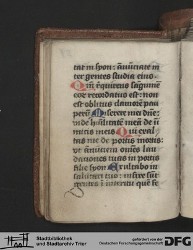 tat in syon : annunciate in
ter gentes studia eius
Qm requirens sanguinē
eoꝝ recordatus est : non
est oblitus clamorē pau
perū Miserere mei dne :
vide humilitatē meā de
inimicis meis Qui exal
tas me de portis mortis :
ut annunciem omnes lau
dationes tuas in portis
filie syon Exultabo in
salutari tuo : infixe sūt
gentes in interitu quē fe
Stadtbibliothek
und Stadtarchiv Trier
gefördert von der
Deutschen Forschungsgemeinschaft
DFG